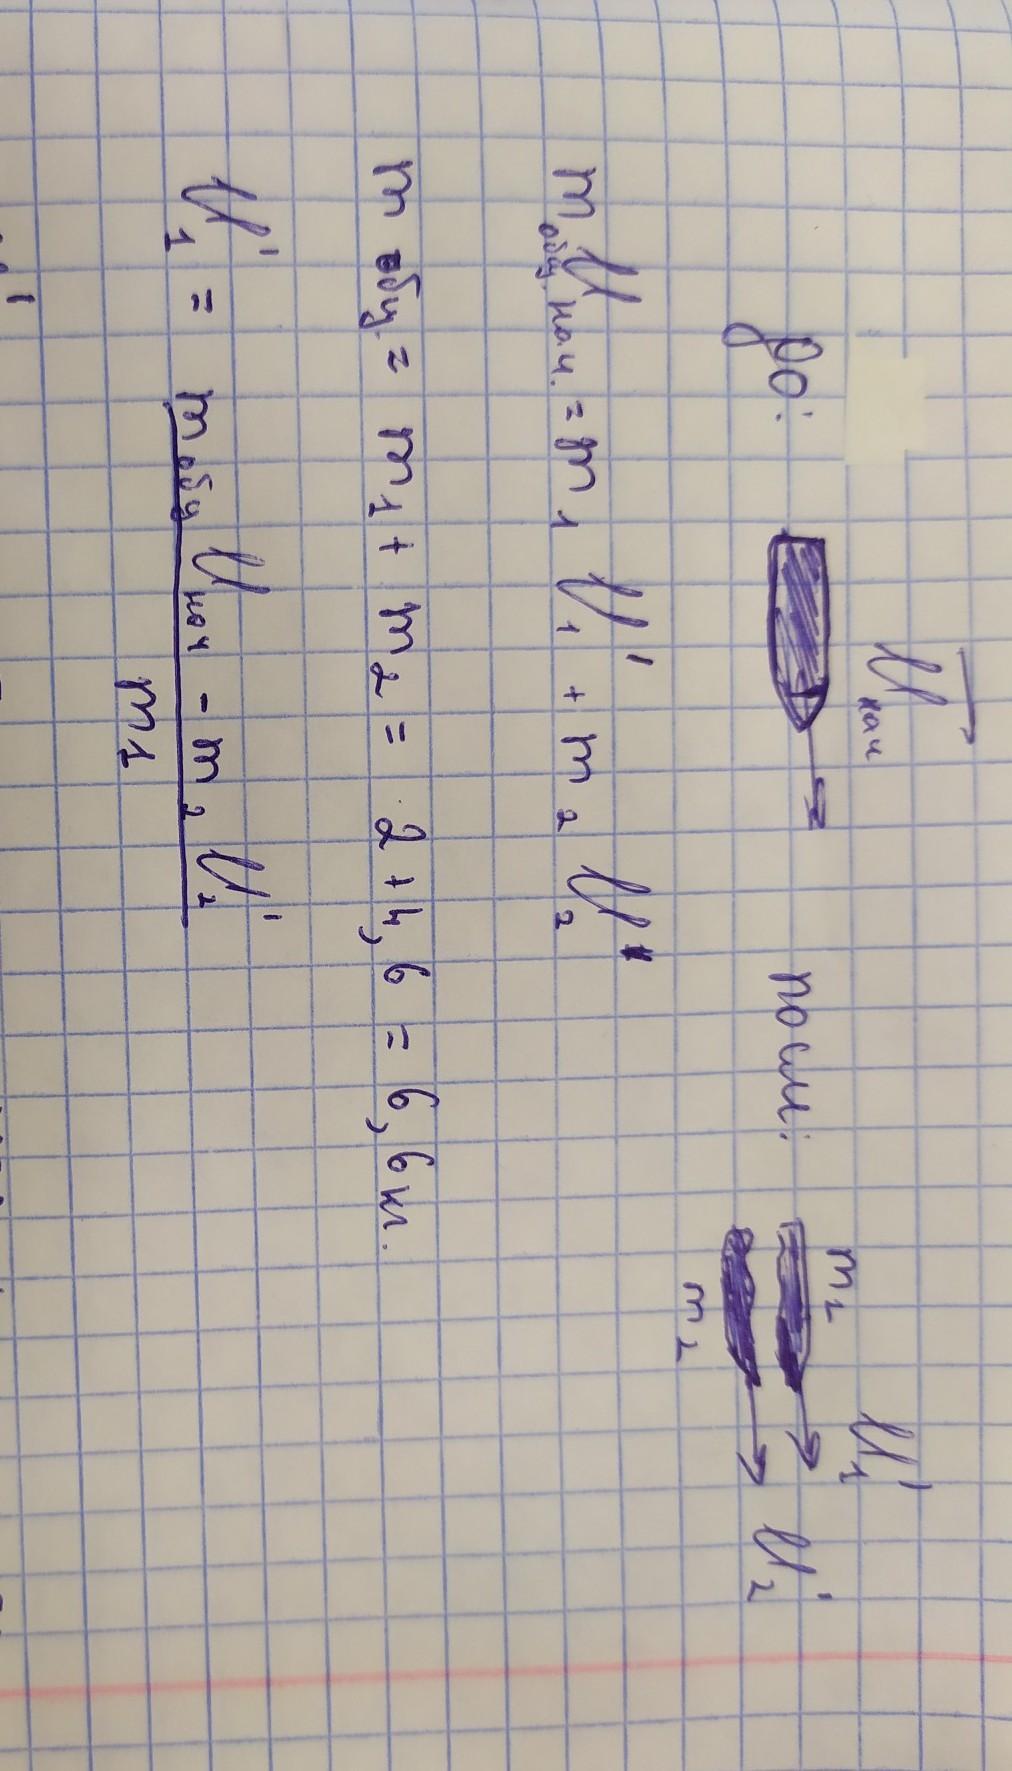 до: υнач посл: m₂ υ₁'
m₂ υ₂'
mобщ. υнач. = m₁ υ₁' + m₂ υ₂'
m общ. = m₁ + m₂ = 2 + 4,6 = 6,6 кг.
υ₁' = (mобщ υнач - m₂ υ₂') / m1